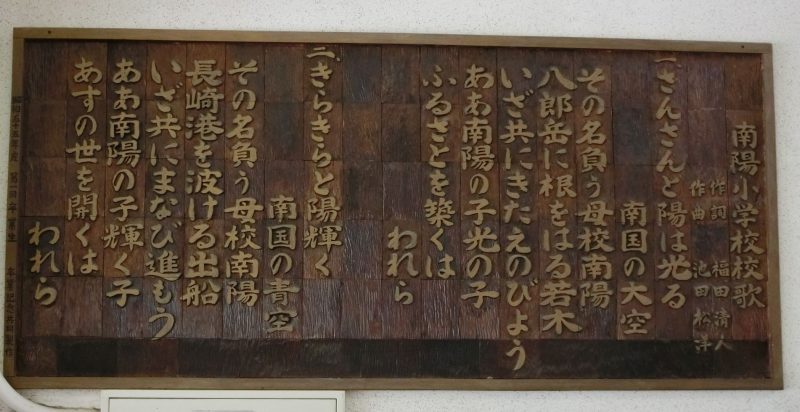 南陽小学校校歌
作詞 福田清人
作曲 池田松洋
一、さんさんと陽は光る
南国の大空
その名負う母校南陽
八郎岳に根をはる若木
いざ共にきたえのびよう
ああ南陽の子光の子
ふるさとを築くは
われら
二、きらきらと陽輝く
南国の青空
その名負う母校南陽
長崎港を波ける出船
いざ共にまなび進もう
ああ南陽の子輝く子
あすの世を開くは
われら
昭和五五年度 第一回卒業生 卒業記念共同製作